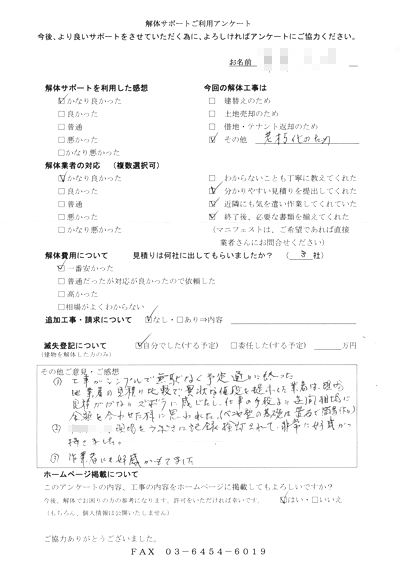 解体サポートご利用アンケート
今後、より良いサポートをさせていただく為に、よろしければアンケートにご協力ください。
お名前
解体サポートを利用した感想
☑かなり良かった
□良かった
□普通
□悪かった
□かなり悪かった
今回の解体工事は
□ 建替えのため
□ 土地売却のため
□ 借地・テナント返却のため
☑ その他 老朽化のため
解体業者の対応 (複数選択可)
☑かなり良かった
□良かった
□普通
□悪かった
□かなり悪かった
□ わからないことも丁寧に教えてくれた
☑ 分かりやすい見積りを提出してくれた
☑ 近隣にも気を遣い作業してくれていた
☑ 終了後、必要な書類を揃えてくれた
(マニフェストは、ご希望であれば直接
業者さんにお問合せください)
解体費用について 見積りは何社に出してもらいましたか? ( 社)
☑一番安かった
□普通だったが対応が良かったので依頼した
□高かった
□相場がよくわからない
追加工事・請求について ☑なし・□あり⇒内容
滅失登記について ☑自分でした(する予定) □委任した(する予定) 万円
(建物を解体した方のみ)
その他ご意見・ご感想
① 工事がシンプルで無駄なく予定通りに終った
② 
持てました。
③ 作業者にも好感がもてました
ホームページ掲載について
このアンケートの内容、工事の内容をホームページに掲載してもよろしいですか?
今後、解体でお困りの方の参考になります、許可をいただければ幸いです。 ☑はい・□いいえ
(もちろん、個人情報は公開いたしません)
ご協力ありがとうございました。
FAX 03-6454-6019